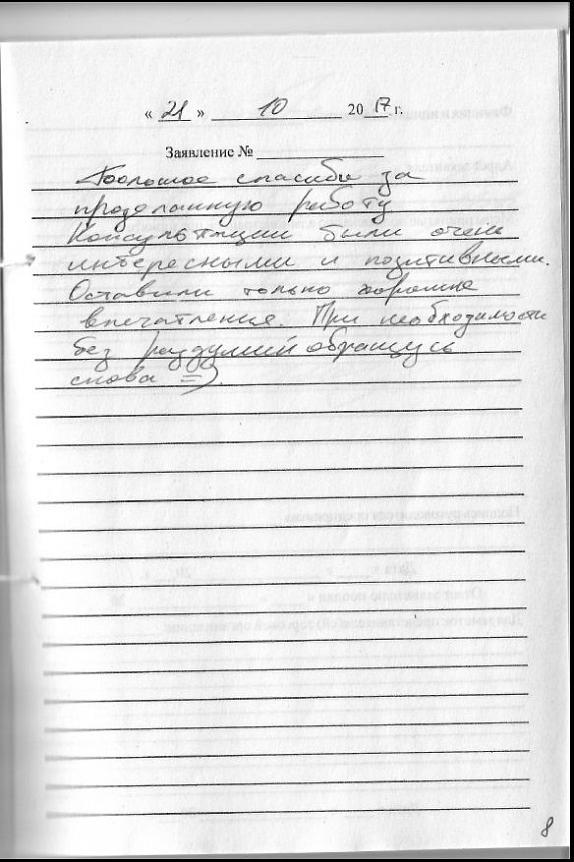 « 21 » 10 20 17 г.
Заявление №
Большое спасибо за
проделанную работу
Консультации были очень
интересными и позитивными.
Оставили только хорошие
впечатления. При необходимости
без раздумий обращусь
снова =).
8